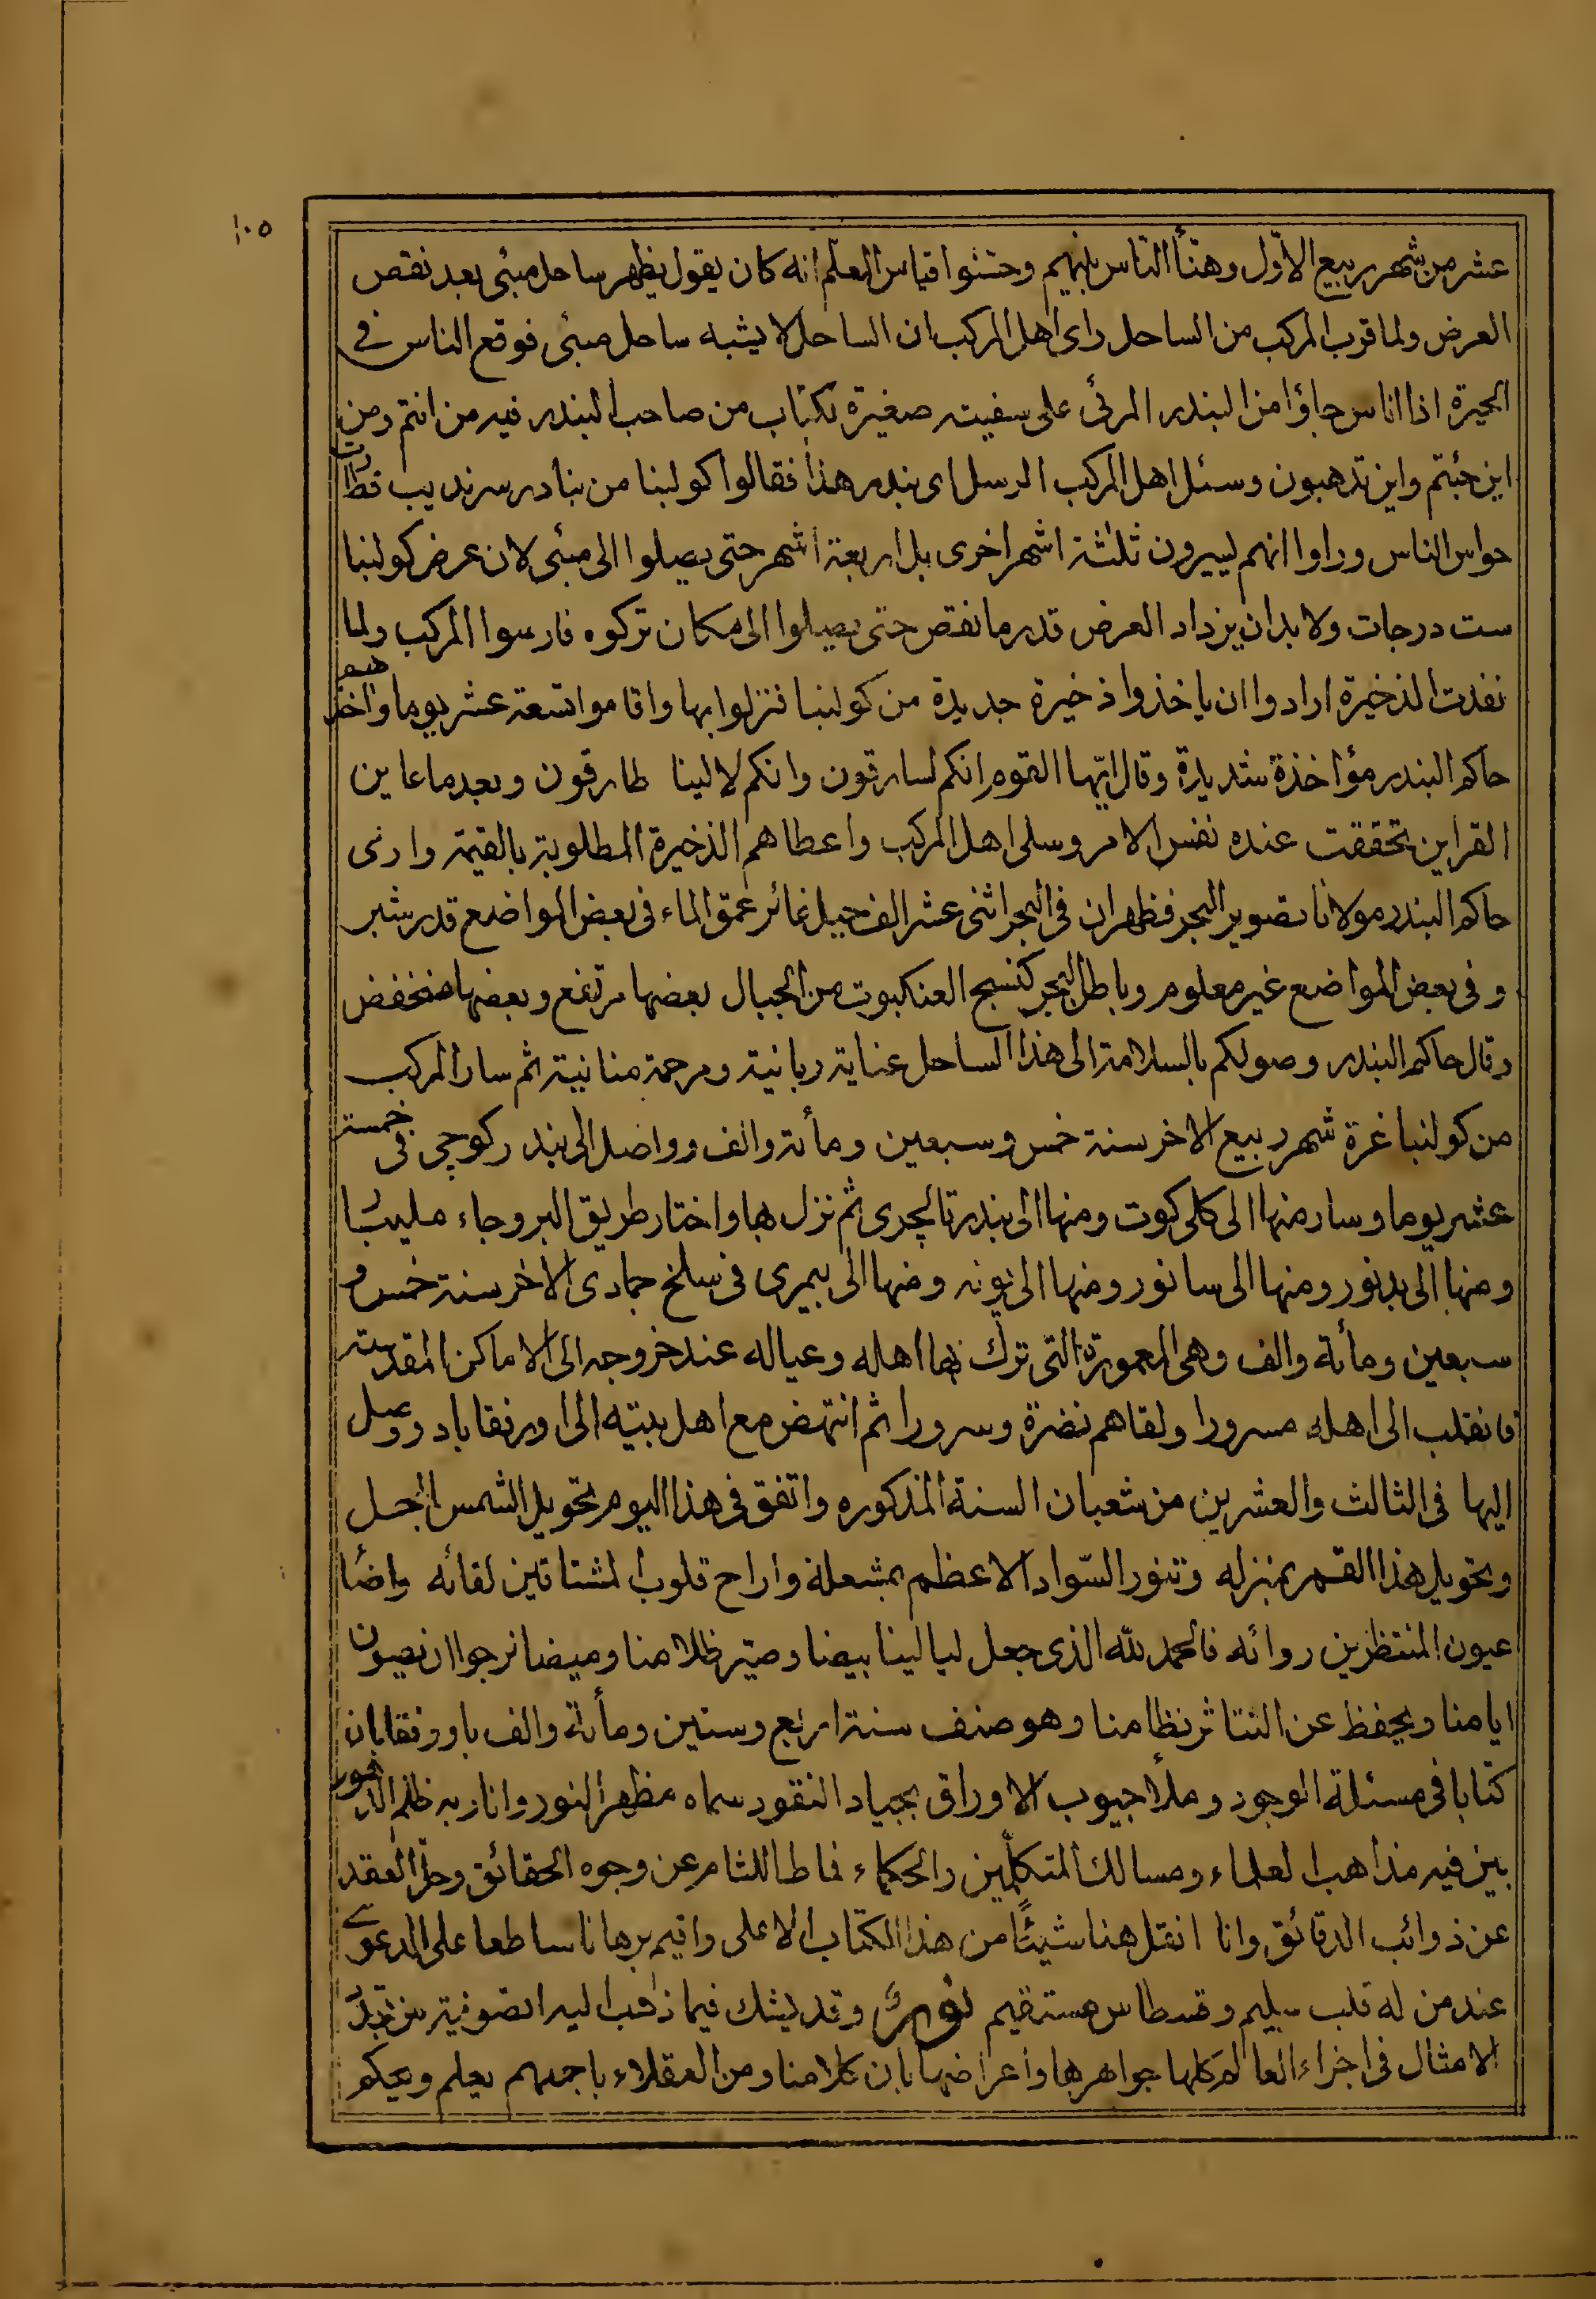 ١٠٥
عشر من شهر ربيع الاول وهنأ الناس بينهم وحسنوا قياس المعلم انه كان يقول يظهر ساحل منبئ بعد نقص
العرض ولما قرب المركب من الساحل راى اهل المركب ان الساحل لا يشبه ساحل منبئ فوقع الناس في
الحيرة اذا اناس جاؤا من البندر المرئي على سفينة صغيرة بكتاب من صاحب البندر فيه من انتم ومن
اين جئتم واين تذهبون وسئل اهل المركب الرسل اى بندر هذا فقالوا كولنبا من بنادر سرنديب فطارت
حواس الناس وراوا انهم يسيرون ثلثة اشهر اخرى بل اربعة اشهر حتى يصلوا الى منبئ لان عرض كولنبا
ست درجات ولا بد ان يزداد العرض قدر ما نقص حتى يصلوا الى مكان تركوه فارسوا المركب ولما
نفدت الذخيرة ارادوا ان ياخذوا ذخيرة جديدة من كولنبا فنزلوا بها واقاموا تسعة عشر يوما واخذهم
حاكم البندر مؤاخذة شديدة وقال ايها القوم انكم لسارقون وانكم لا لينا طارقون وبعد ما عاين
القراين تحققت عنده نفس الامر وسلى اهل المركب واعطاهم الذخيرة المطلوبة بالقيمة وارى
حاكم البندر مولانا تصوير البحر فظهر ان في البحر اثنى عشر الف جبيل غائر عمق الماء في بعض المواضع قدر شبر
وفي بعض المواضع غير معلوم وباطن البحر كنسج العنكبوت من الجبال بعضها مرتفع وبعضها منخفض
وقال حاكم البندر وصولكم بالسلامة الى هذا الساحل عناية ربانية ومرحمة منانية ثم سار المركب
من كولنبا غرة شهر ربيع الاخر سنة خمس وسبعين ومأة والف وواصل الى بندر كوچى في خمسة
عشر يوما وسار منها الى كلى كوت ومنها الى بندر تالچرى ثم نزل بها واختار طريق البر وجاء
ومنها الى بدنور ومنها الى سانور ومنها الى پونه ومنها الى بيمرى في سلخ جمادى الاخر سنة خمس و
سبعين ومأة والف وهى المعمورة التى ترك بها اهله وعياله عند خروجه الى الاماكن المقدسة
فانقلب الى اهله مسرورا ولقاهم نضرة وسرورا ثم انتهض مع اهل بيته الى اورنقاباد ووصل
اليها في الثالث والعشرين من شعبان السنة المذكوره واتفق في هذا اليوم تحويل الشمس الحمل
وتحويل هذا القمر بمنزله وتنور السواد الاعظم بمشعلة واراح قلوب المشتاقين لقائه واضا
عيون المنتظرين روائه فالحمد لله الذى جعل ليالينا بيضا وصير ظلامنا وميضا نرجوا ان يصون
ايامنا ويحفظ عن التناثر نظامنا وهو صنف سنة اربع وستين ومأة والف باورنقاباد
كتابا في مسئلة الوجود وملأ جيوب الاوراق بجياد النقود سماه مظهر النور وانار به ظلم الديجور
بين فيه مذاهب العلماء ومسالك المتكلمين والحكماء فاماط اللثام عن وجوه الحقائق وحل العقد
عن ذوائب الدقائق وانا انقل هنا شيئًا من هذا الكتاب الاعلى واقيم برهانا ساطعا على الدعوى
عند من له قلب سليم وقسطاس مستقيم نور وقد يشك فيما ذهب اليه الصوفية من تبدل
الامثال في اجزاء العالم كلها جواهرها واعراضها بان كلا منا ومن العقلاء باجمعهم يعلم ويحكم